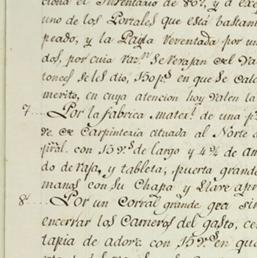 ciona el Inventario de 807, y à exc
uno de los Portales que está bastan
peado, y la Payla reventada por un
dos, por cuia raz.n se revajan del va
tonces se les dio, 150 p.s en que se calc
merito, en cuya atencion hoy valen la
7 Por la fabrica mater.l de una p
de de Carpinteria cituada al Norte d
pral. con 15 v.s de largo y 4¾ de an
do de raja, y tableta, puerta grande
manos con su Chapa y Llave apr
8 Por un Corral grande qea sir
encerrar los Carneros del gasto, ce
tapia de adove con 15 v.s en qu